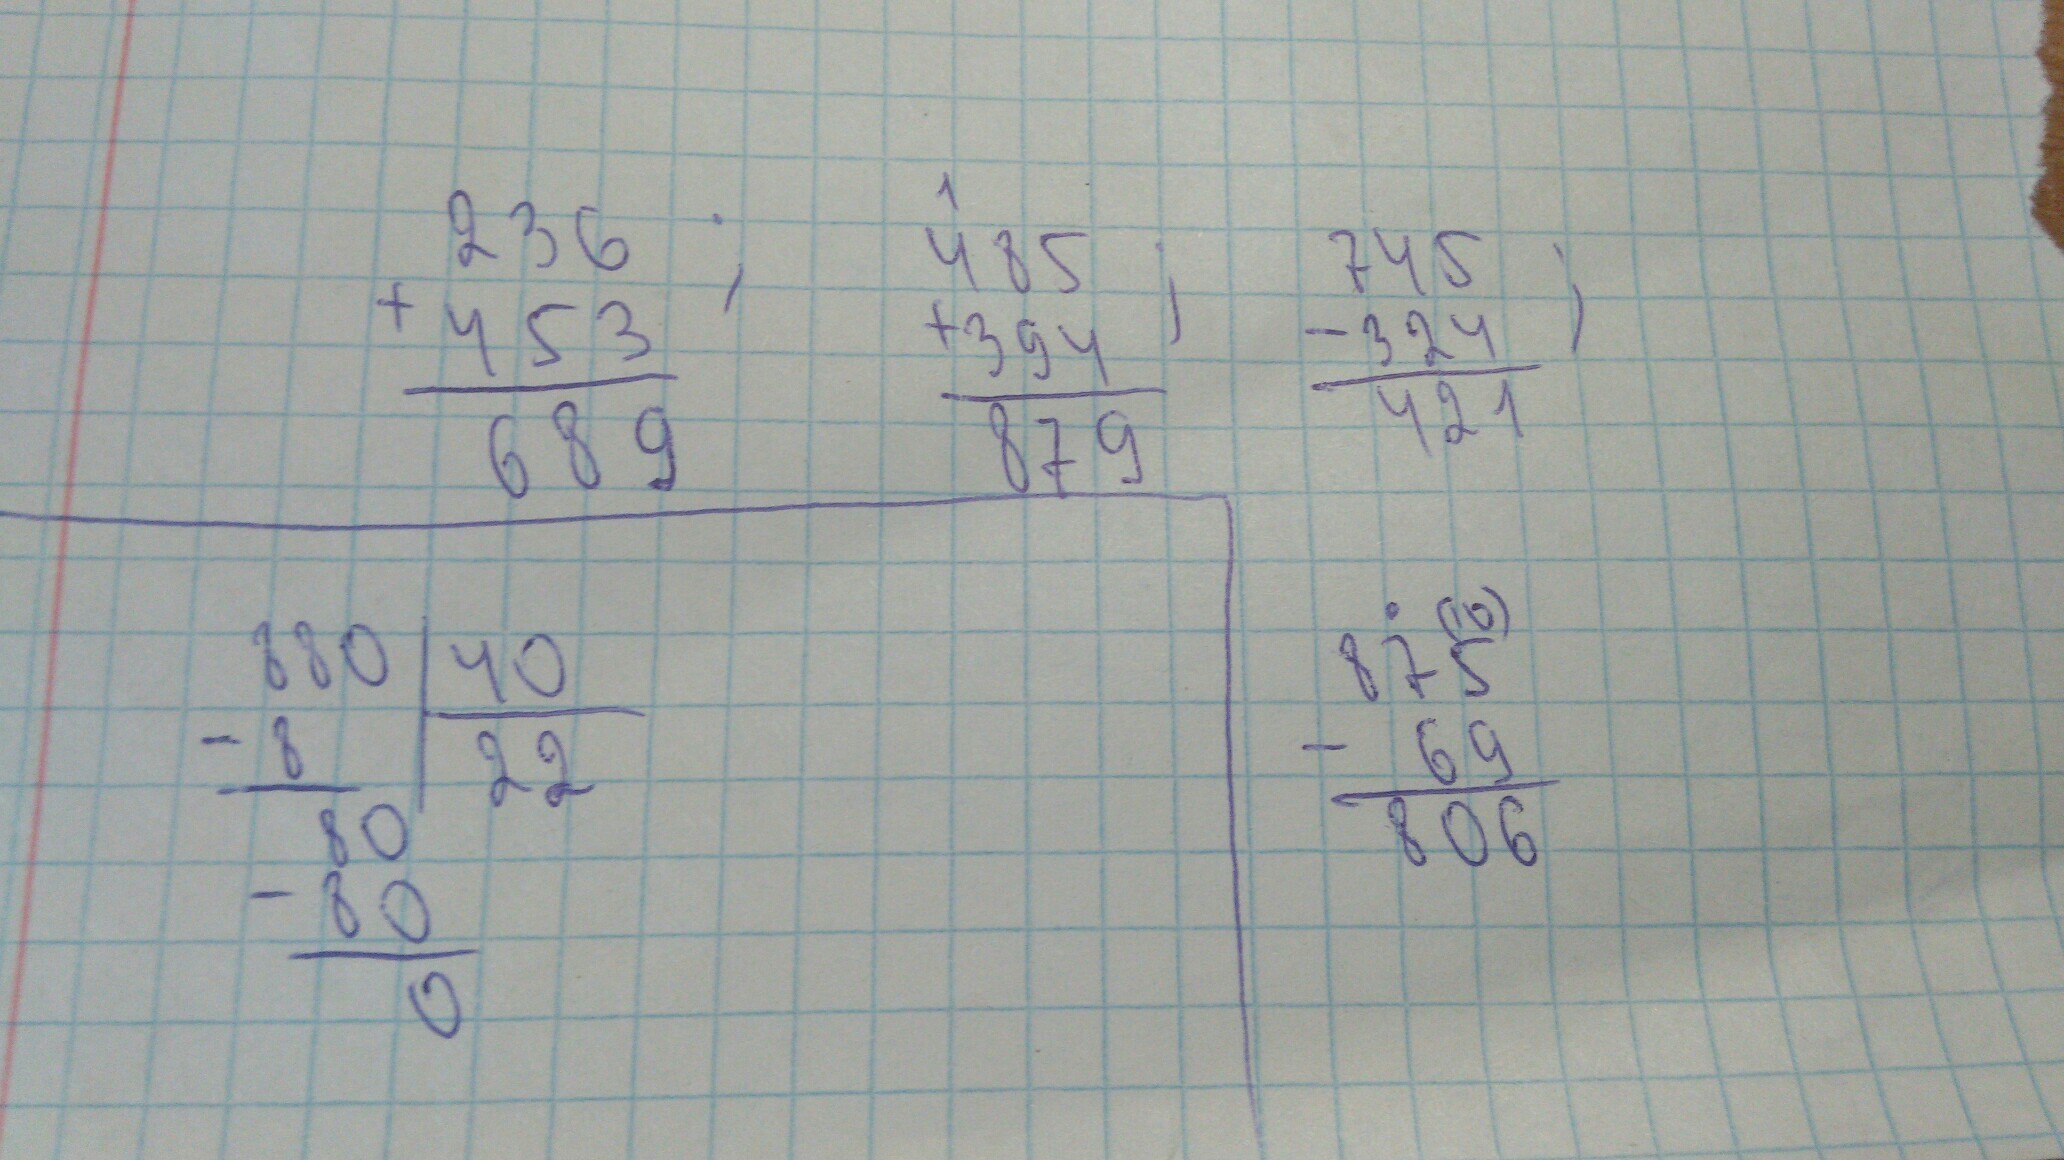 1
236 ; 485 ; 745 ;
+ 453 +394 -324
689 879 421
• (10)
880 | 40 875
- 8 22 - 69
80 806
- 80
0